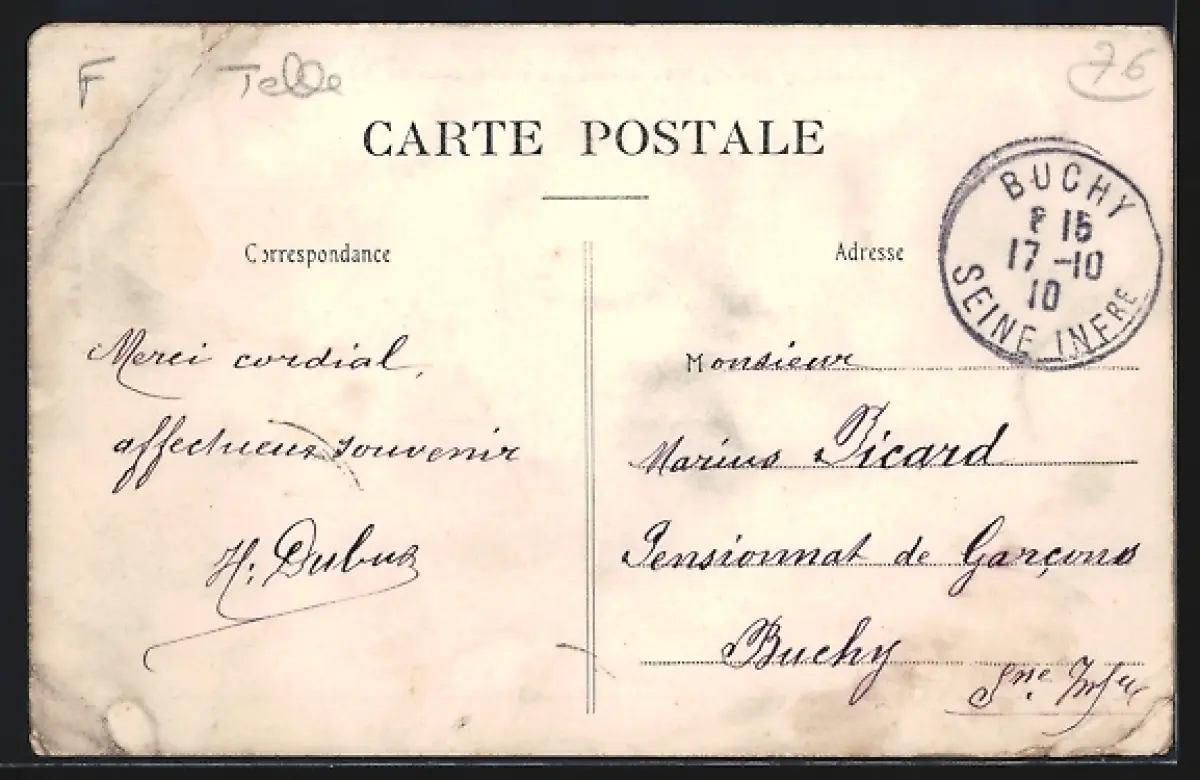 F
76
CARTE POSTALE
Correspondance
Adresse
BUCHY
15
17 -10
10
SEINE INFRE
Merci cordial,
affectueux souvenir
H. Dubus
Monsieur
Marius Picard
Pensionnat de Garçons
Buchy
Sne Infre